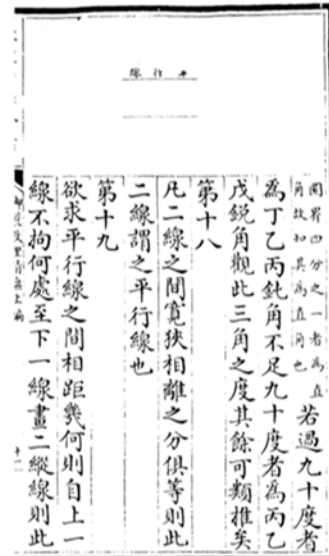 平行線
圜界四分之一者為直
角故知其為直角也
若過九十度者
為丁乙丙鈍角不足九十度者為丙乙
戊鋭角觀此三角之度其餘可類推矣
第十八
凡二線之間寬狹相離之分俱等則此
二線謂之平行線也
第十九
欲求平行線之間相距幾何則自上一
線不拘何處至下一線畫二縱線則此